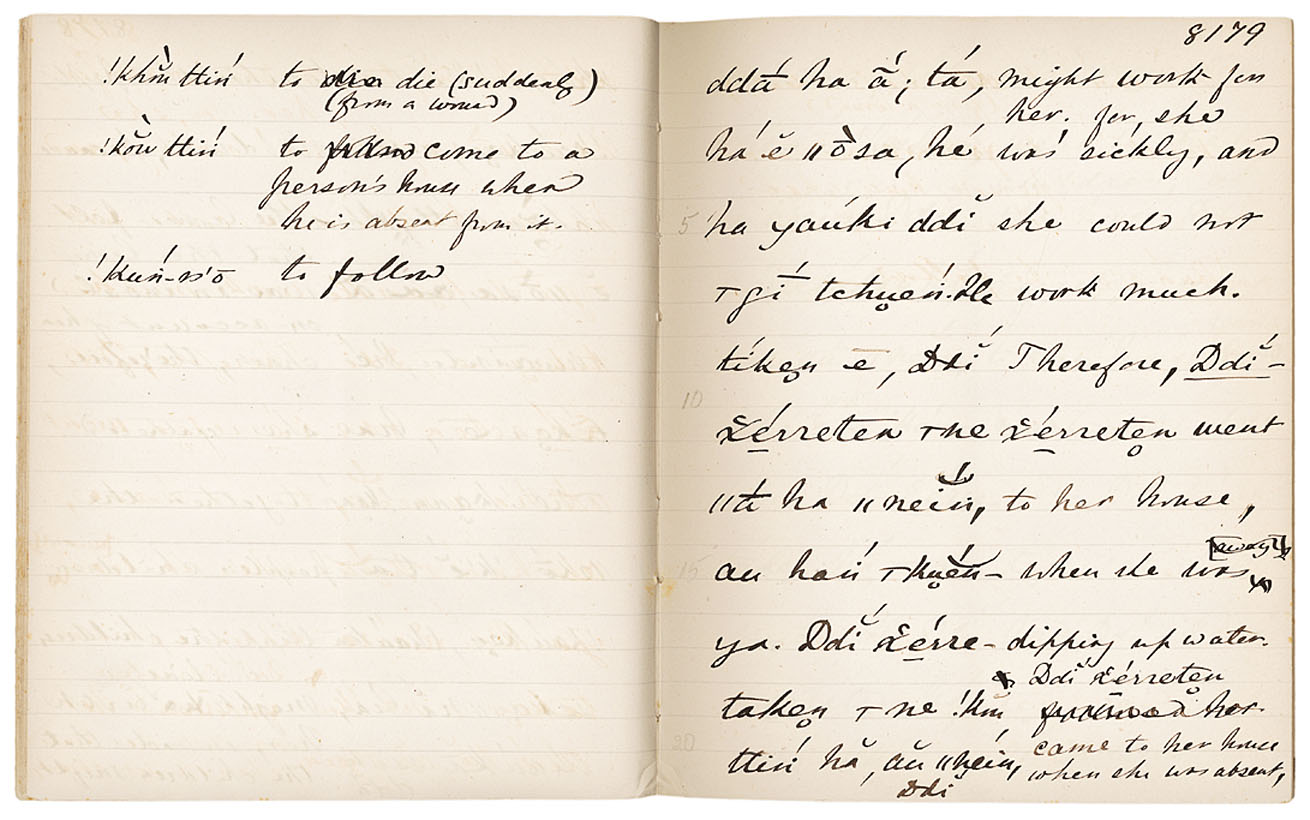 !khŏ̀u ttín to die (suddenly)
(from a wound)
!kŏ̀u ttín to come to a
person's house when
he is absent from it.
!kuń-s'ō to follow
8179
ddā́ ha ā́; tá, might work for
her. for, she
há ĕ ıı ṑsa, hé was sickly, and
5 ha yaúki ddĭ́ she could not
⊤gí́ tchu̥eń. He work much.
tíke̥n ē, Ddĭ́ Therefore, Ddĭ́-
10
x̆é̱rreten ⊤ne x̆é̱rrete̥n went
ıı ā́ ha ıı neiń, to her house,
15 au hań ⊤ku̥ĕń- when she was
ya. Ddĭ́ x̆é̱rre- dipping up water.
Ddĭ́ x̆érrete̥n
take̥n ⊤ ne !kŏu her
20 ttiń hă, au ıı neiń, came to her house
when she was absent,
Ddĭ́